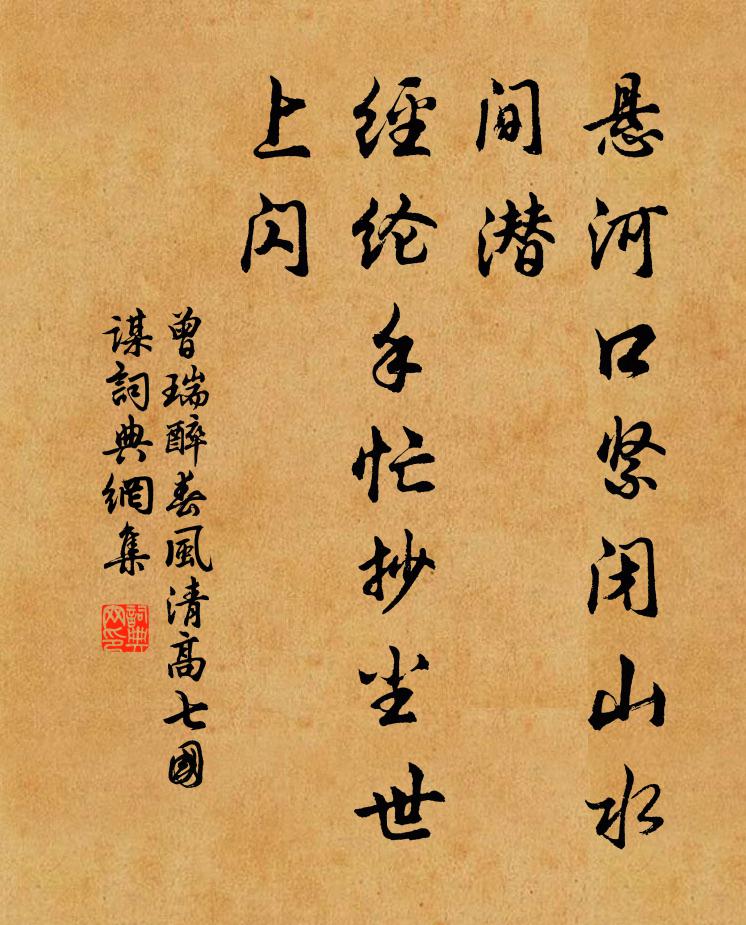 悬河口紧闭山水
间潜
經纶手忙抄尘世
上闪
曾瑞醉春風清高七國
谋詞典網集
詞典网印